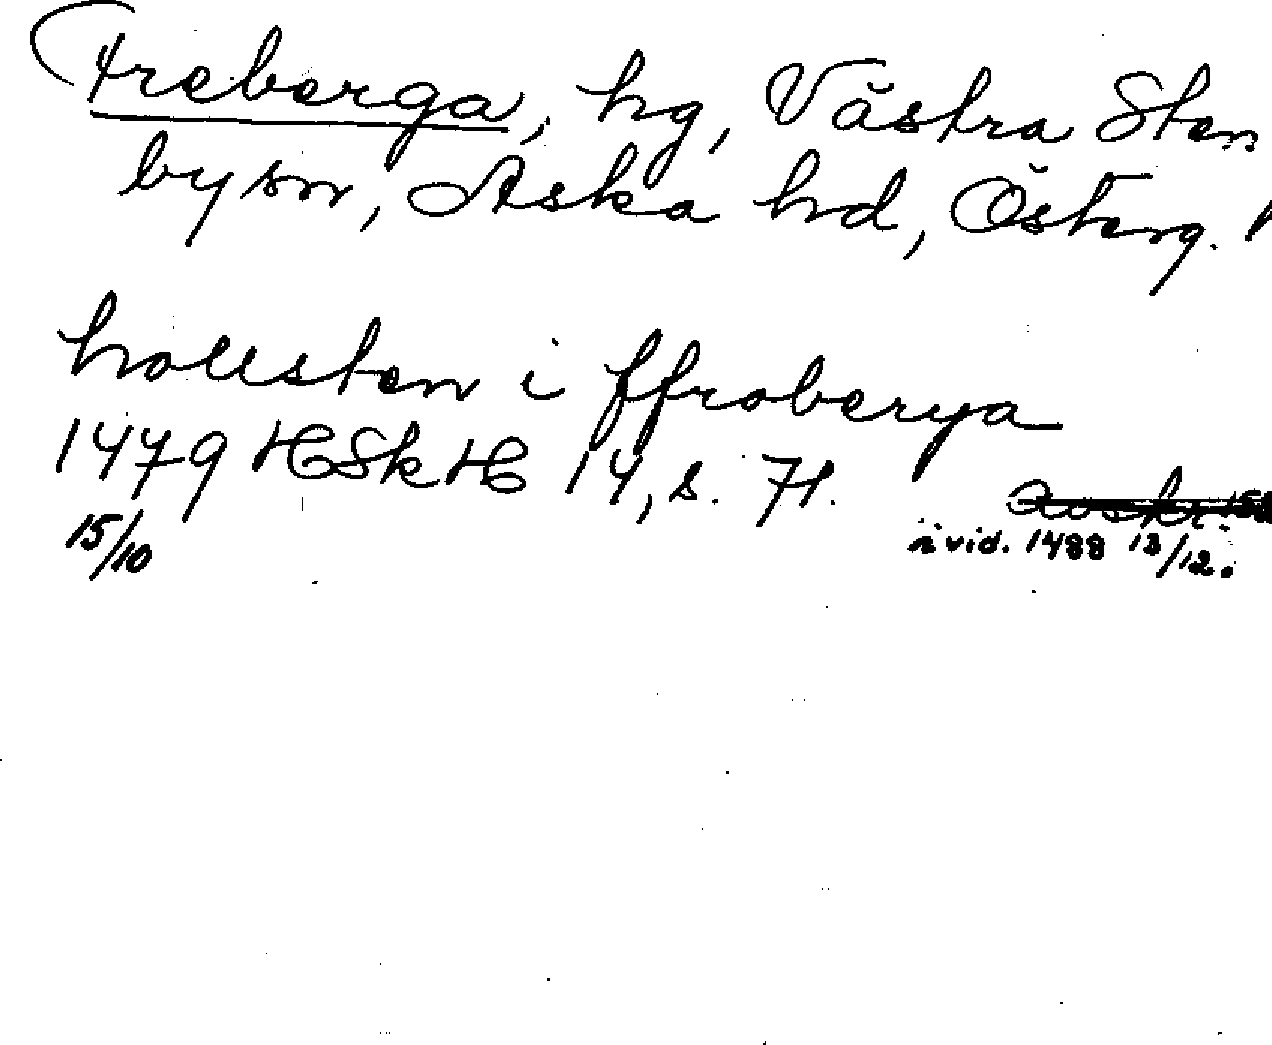 Freberga, hg, Västra Sten
by sn, Aska hd, Österg.
hollsten i ffroberga
1479 HSkH 14, s. 71.
15/10
i vid. 1488 13/12.